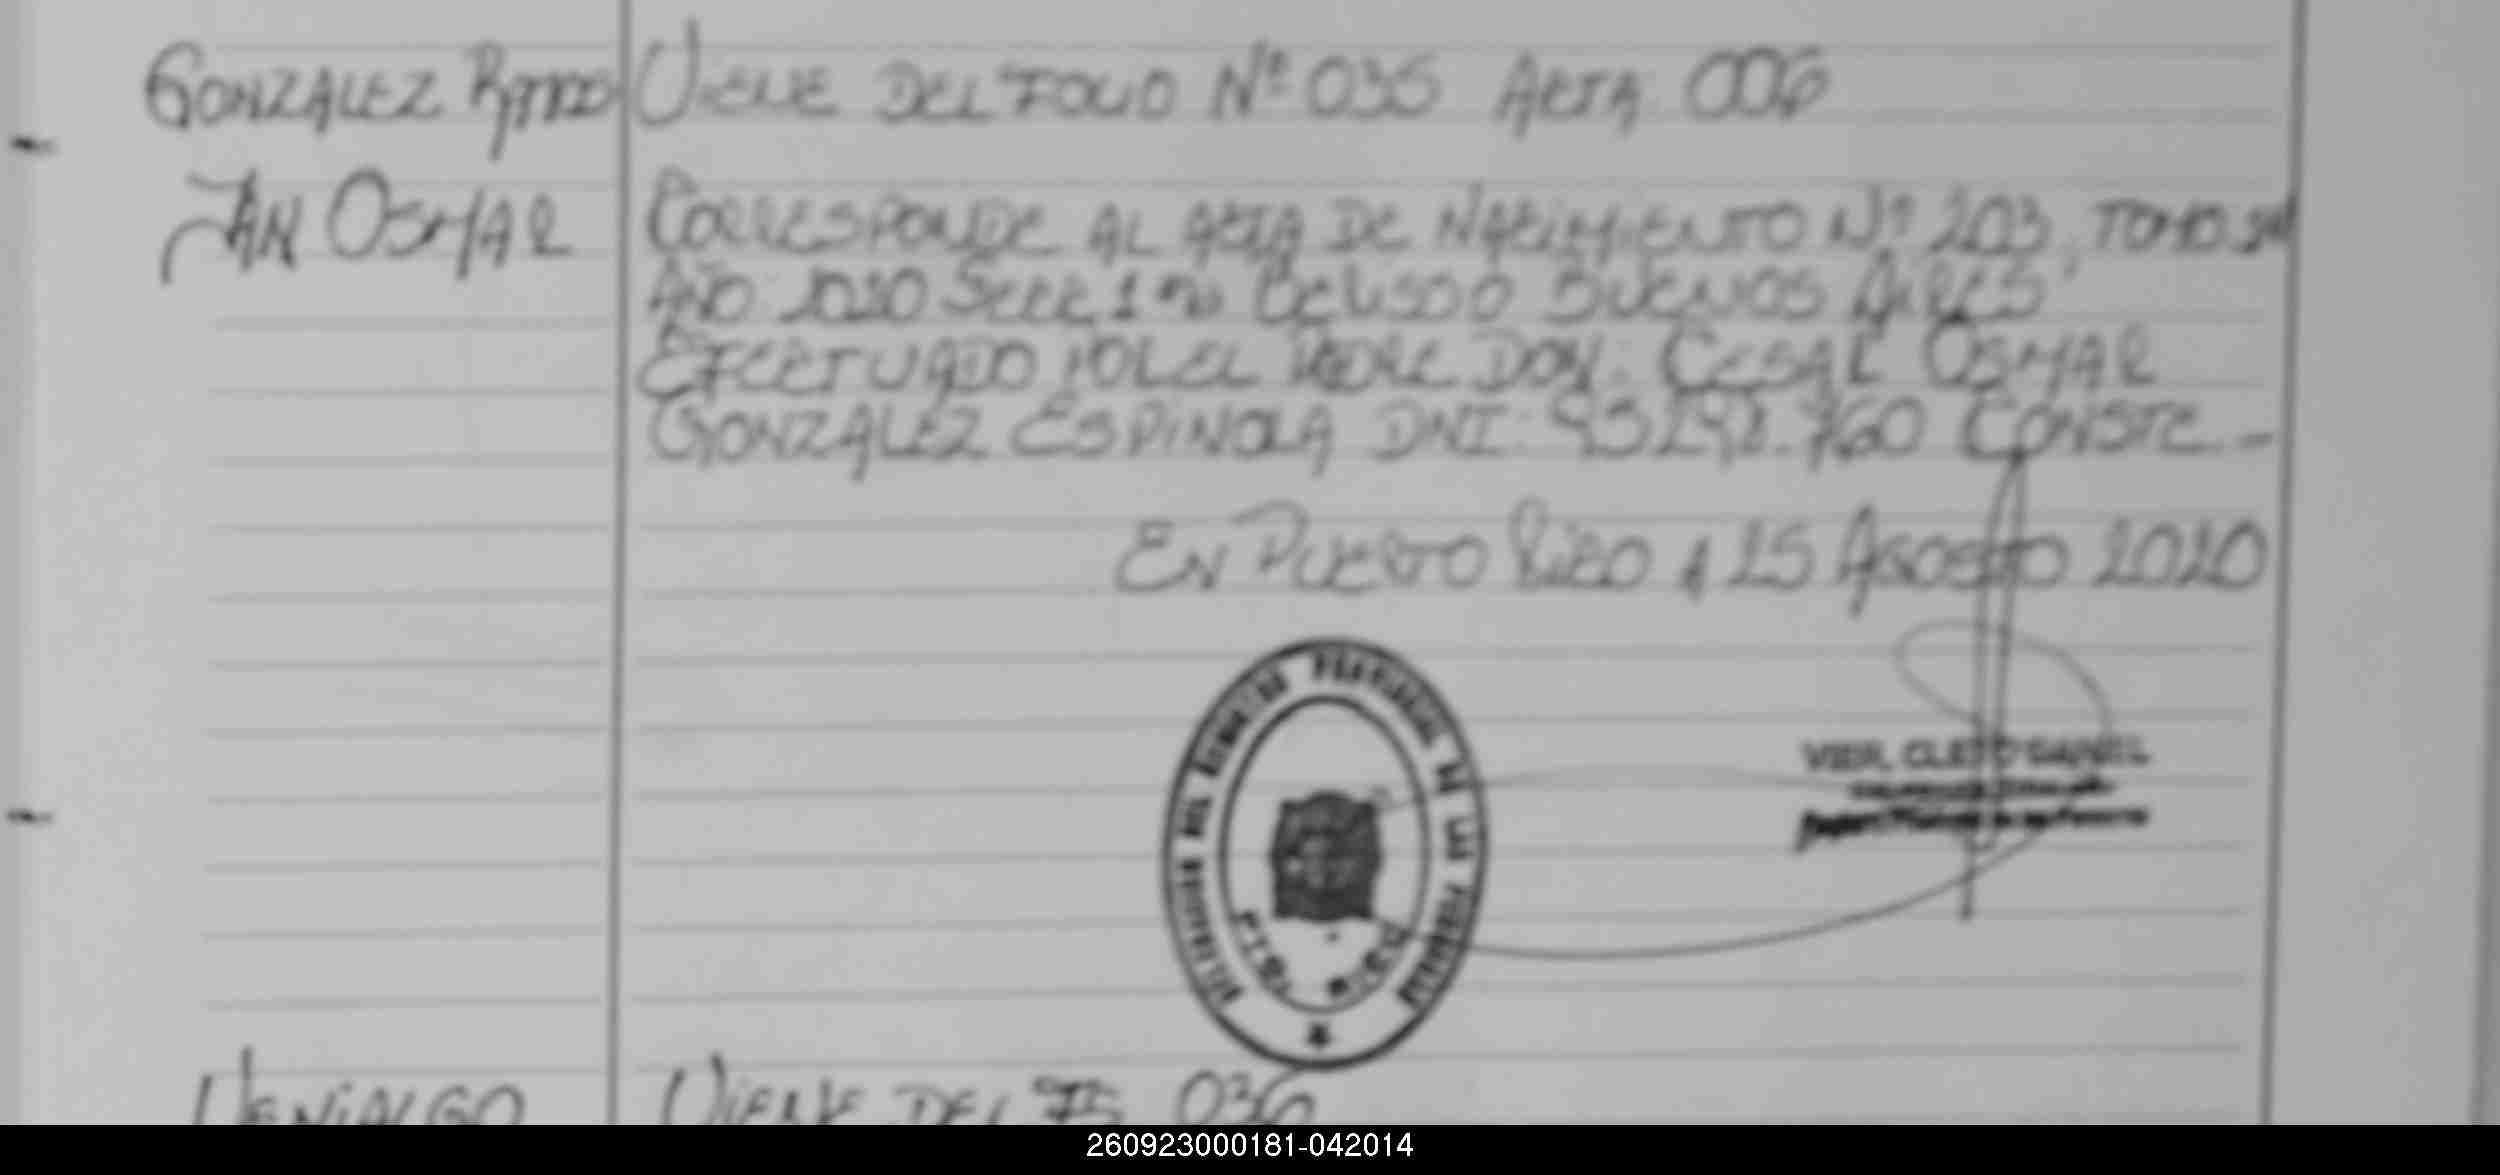 GONZALEZ RAMOS
JAN OSMAR
VIENE DEL FOLIO Nº 035 ACTA 006
CORRESPONDE AL ACTA DE NACIMIENTO Nº 203, TOMO
AÑO 2020 SECC 1 BERISSO BUENOS AIRES
EFECTUADO POR EL PADRE DON: CESAR OSMAR
GONZALEZ ESPINOLA DNI: 93298.760 CONSTE.-
EN PUERTO RICO A 25 AGOSTO 2020
PROVINCIAL DE LAS PERSONAS
VIER, CLETO DANIEL
VENIALGO
VIENE DEL Fº 036
260923000181-042014